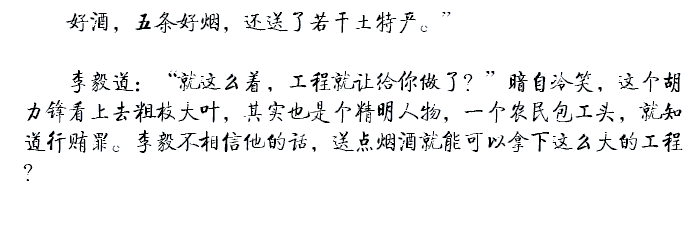 好酒，五条好烟，还送了若干土特产。”
李毅道：“就这么着，工程就让给你做了？”暗自冷笑，这个胡
力锋看上去粗枝大叶，其实也是个精明人物，一个农民包工头，就知
道行贿罪。李毅不相信他的话，送点烟酒就能可以拿下这么大的工程
？